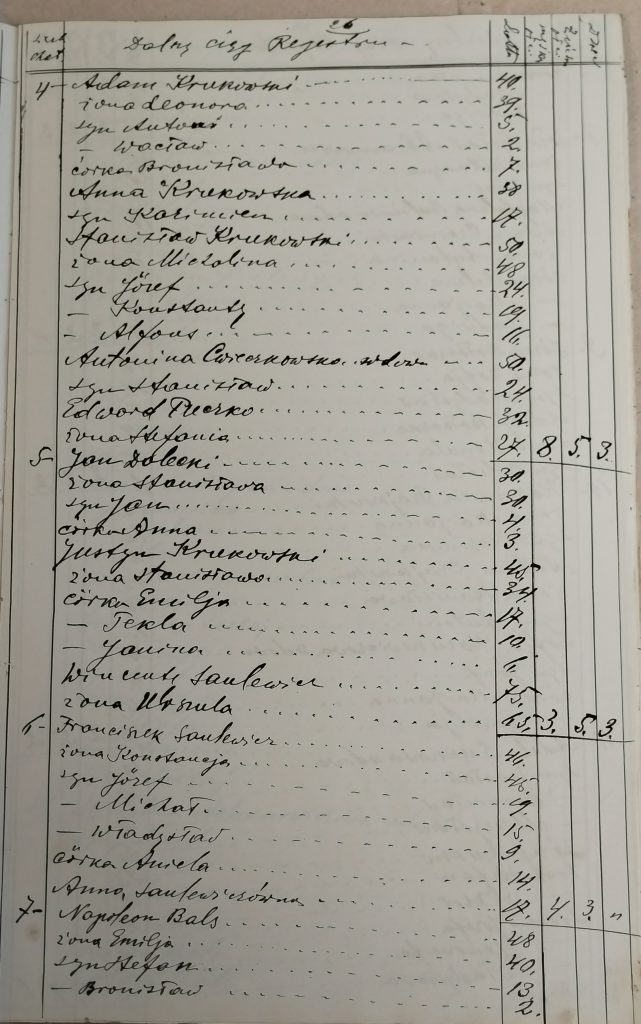 26
Liczb chat. Dalszy ciąg Rejestru - Lata męzka płci Żeńska płci Dzieci
4 - Adam Krukowski 40.
żona Leonora 39.
syn Antoni 5.
- Wacław 2.
córka Bronisława 7.
Anna Krukowska 58
syn Kazimierz 17.
Stanisław Krukowski 50.
żona Michalina 48
syn Józef 24.
- Konstanty 19.
- Alfons 16.
Antonina Cwieczkowska wdow 50.
syn Stanisław 24.
Edward Puczko 32.
żona Stefania 27. 8. 5. 3.
5 - Jan Dolecki 30.
żona Stanisława 30.
syn Jan 4.
córka Anna 3.
Justyn Krukowski 45
żona Stanisława 34
córka Emilja 17.
- Tekla 10.
- Janina 6.
Wincenty Saulewicz 75.
żona Urszula 65. 3. 5. 3.
6 - Franciszek Saulewicz 46.
żona Konstancja 45.
syn Józef 19.
- Michał 15.
- Władysław 9.
córka Aniela 14.
Anna Saulewiczówna 17. 4. 3. "
7 - Napoleon Bals 48
żona Emilja 40.
syn Stefan 13
- Bronisław 2.